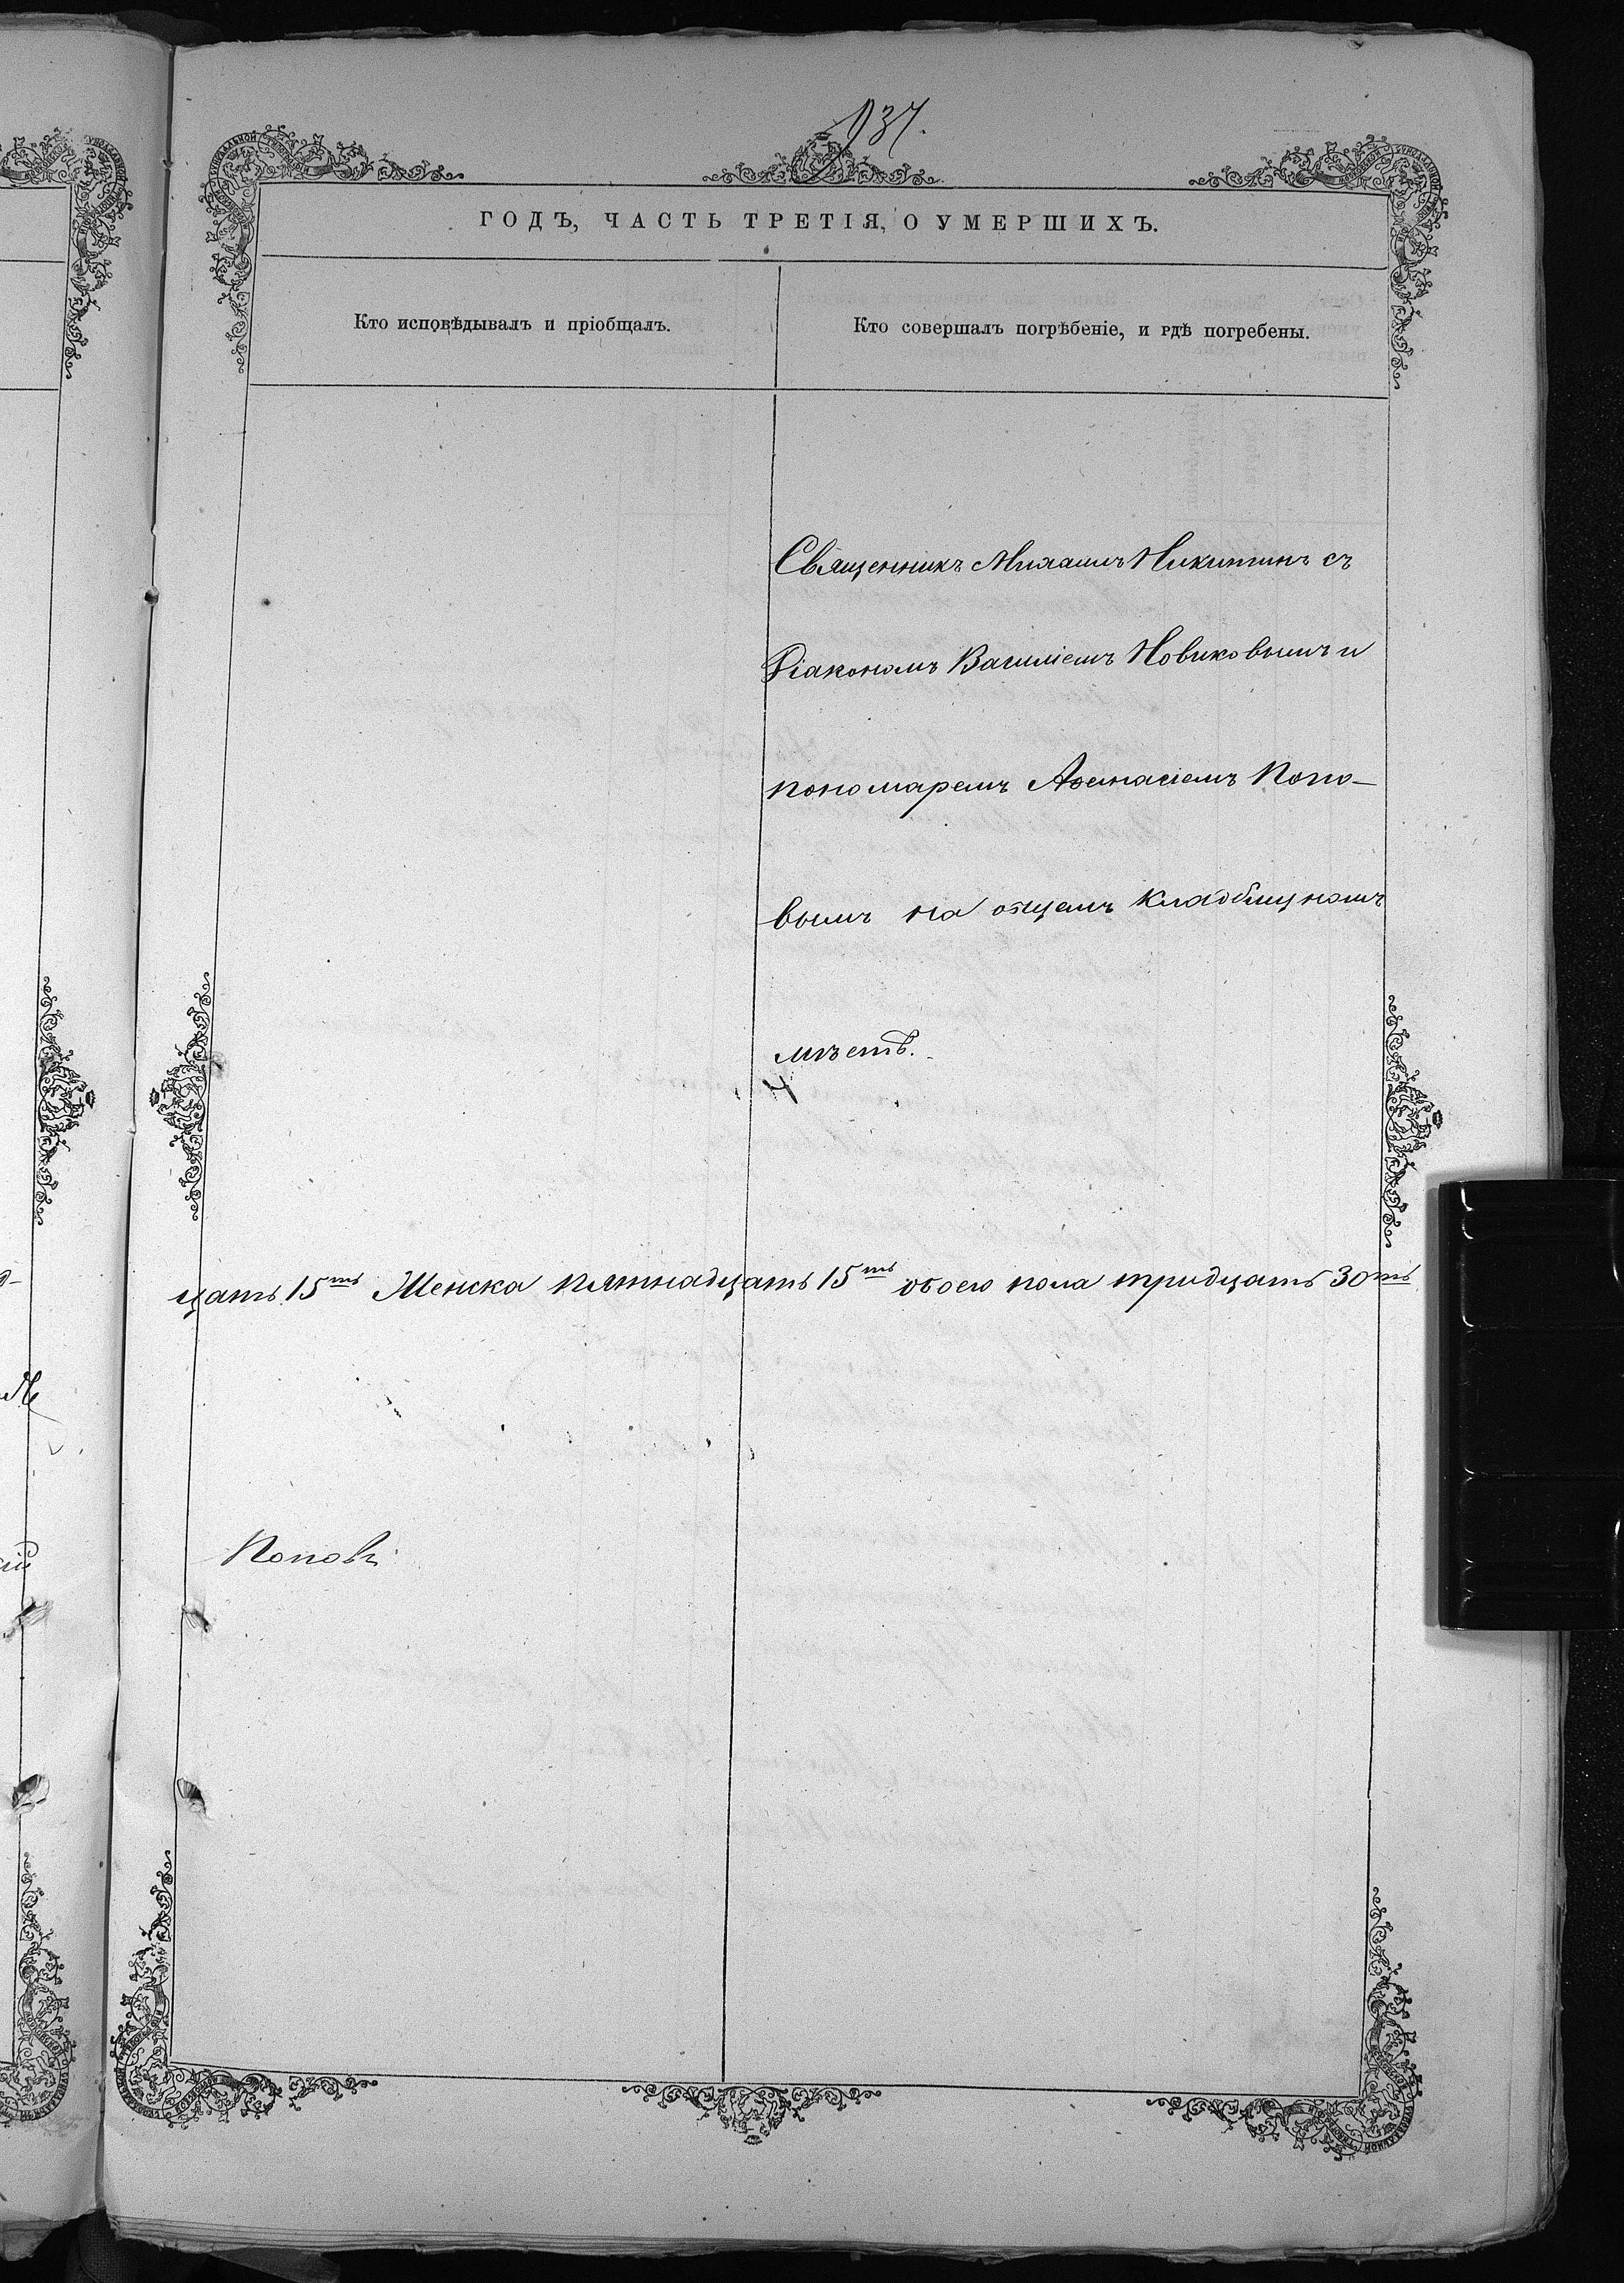 937.
ГОДЪ, ЧАСТЬ ТРЕТІЯ, О УМЕРШИХЪ.
Кто исповѣдывалъ и пріобщалъ.
Кто совершалъ погрѣбеніе, и гдѣ погребены.
Священникъ Михаилъ Никитинъ съ
Діакономъ Василіемъ Новиковымъ и
пономаремъ Аѳанасіемъ Попо-
вымъ на общемъ кладбищномъ
мѣстѣ.
цать 15ть Женска пятнадцать 15ть обоего пола тридцать 30ть
Поповъ